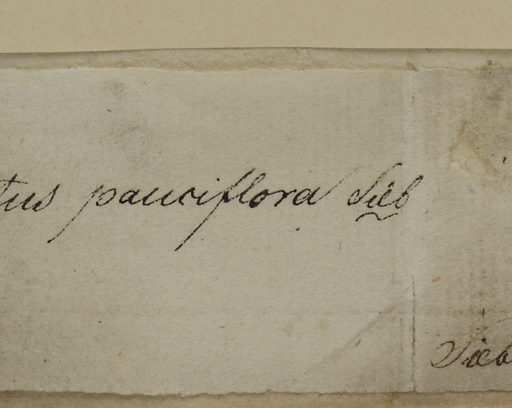 tus pauciflora Sieb
Sieb